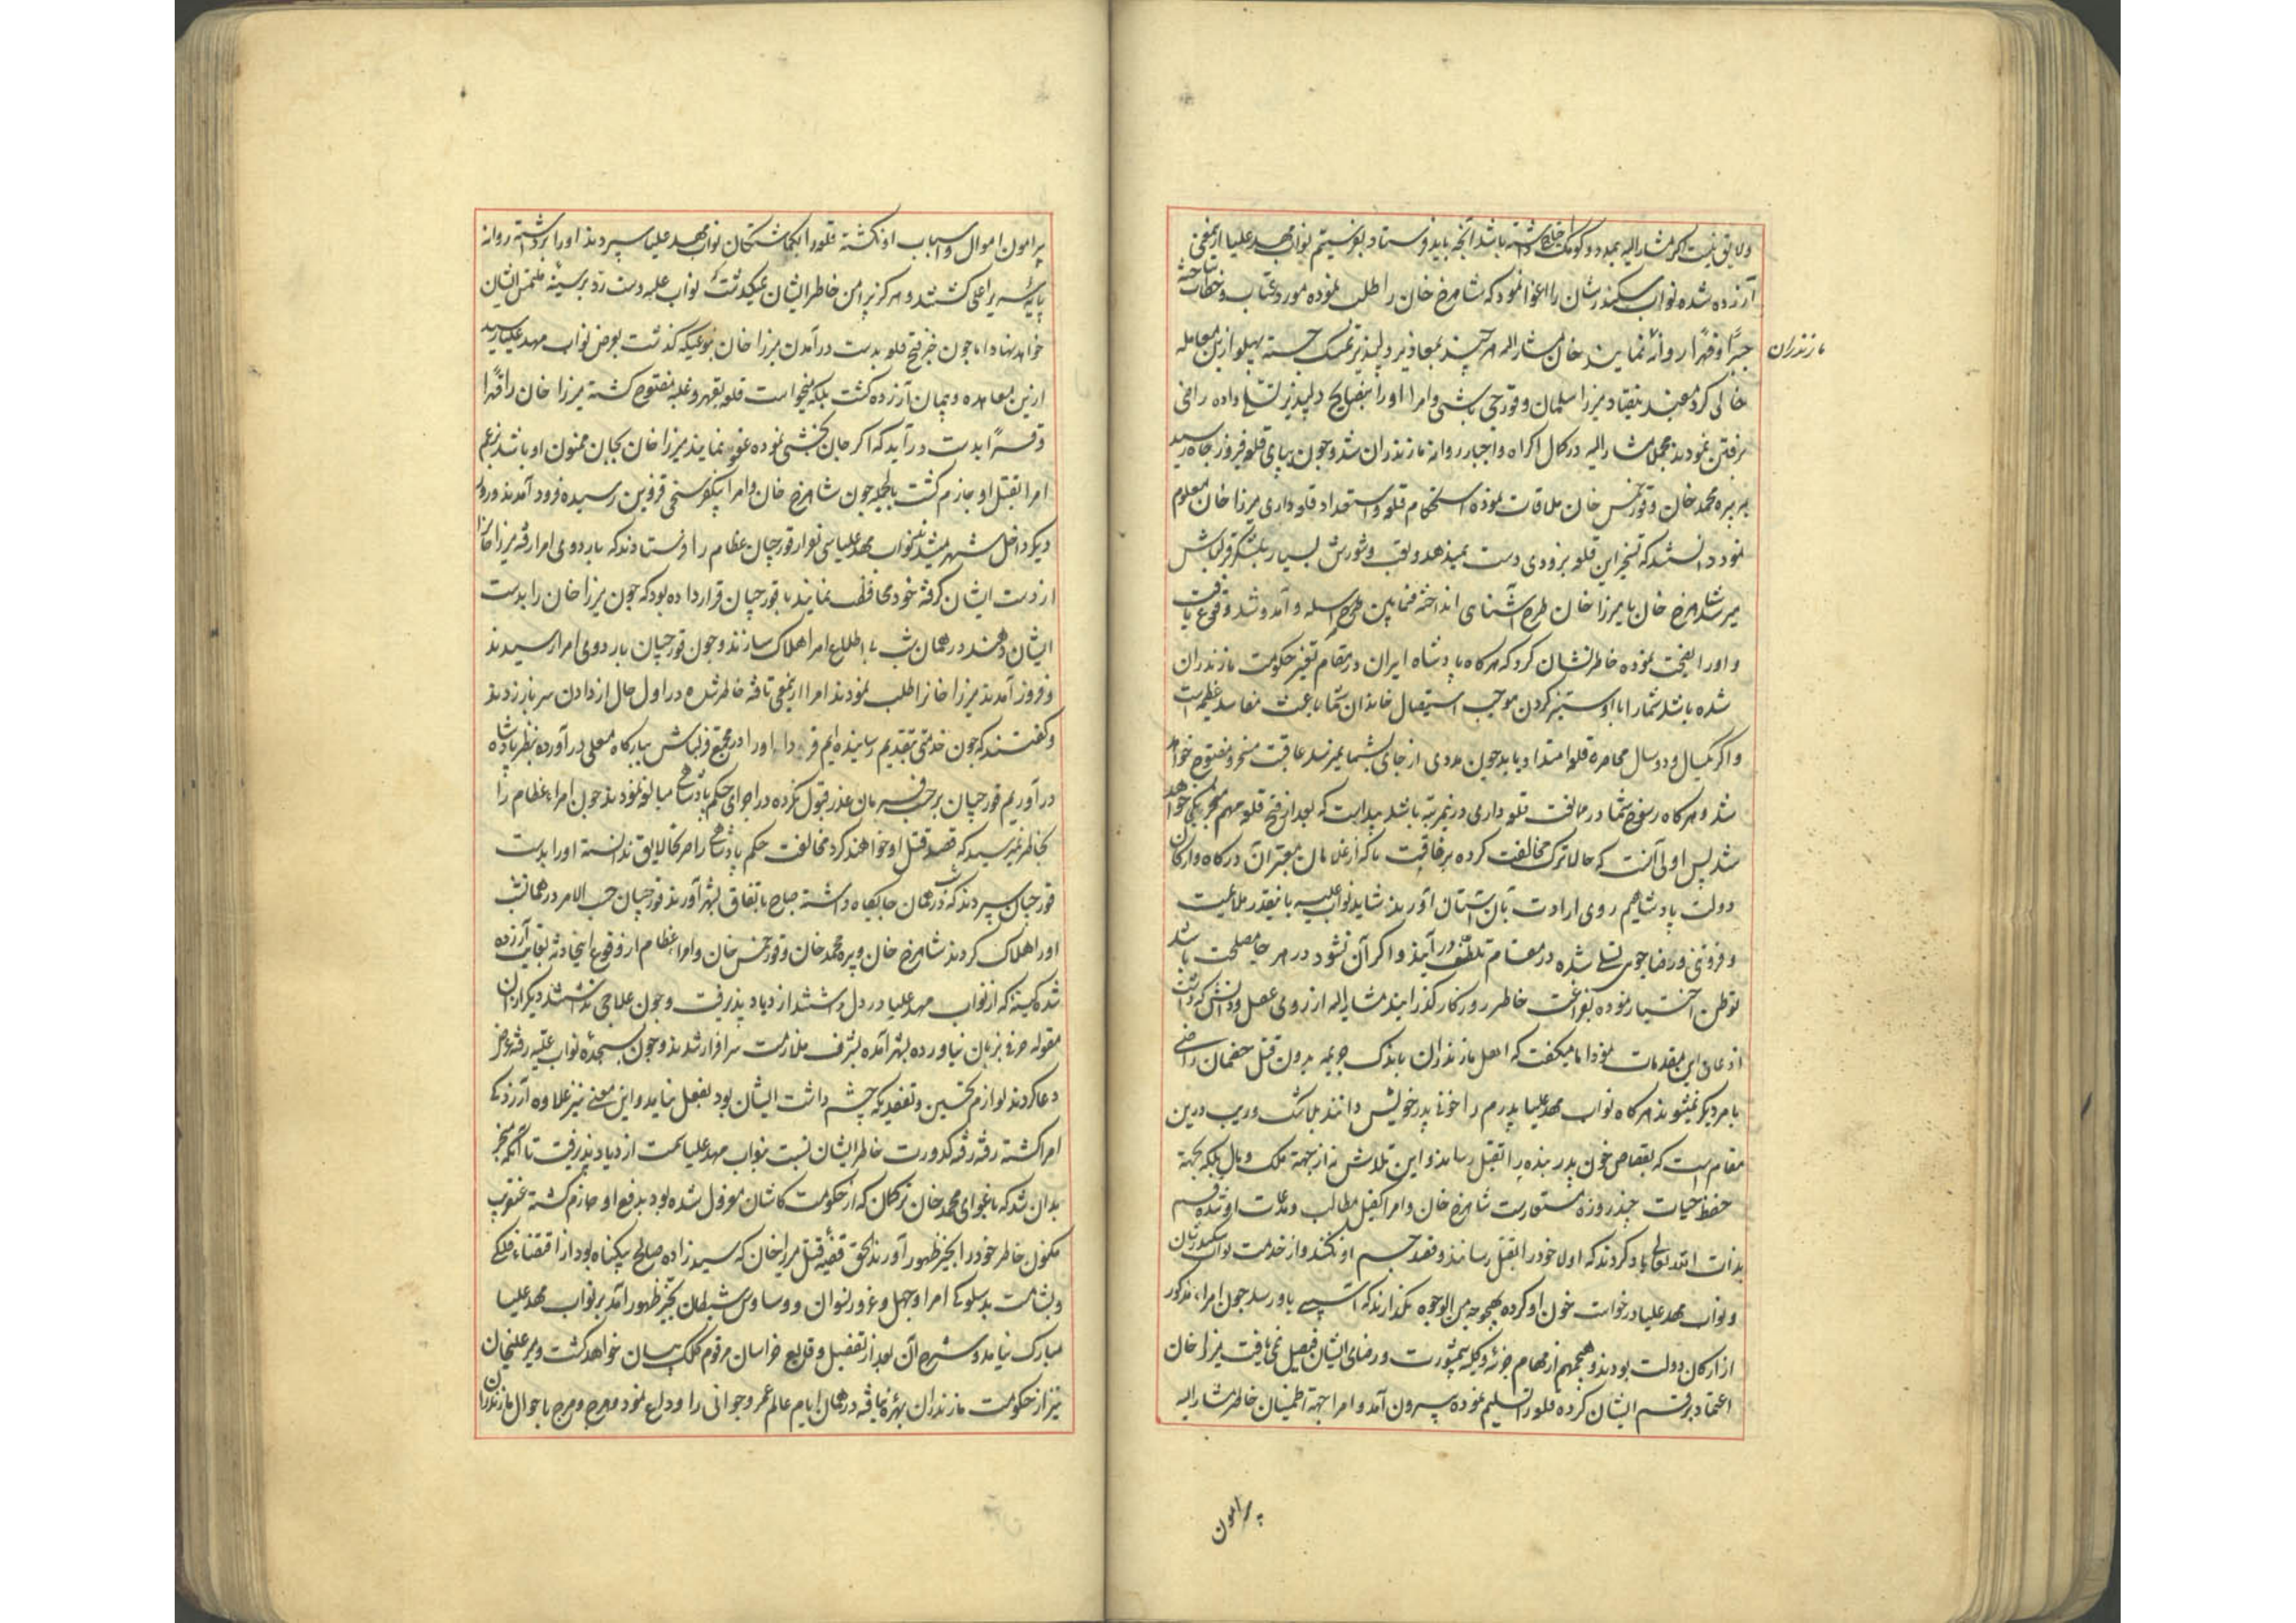 ولایق نیست اگر مشارالیه بمدد و کومک احتیاج داشته باشد آنچه باید فرستاد بفرستیم نواب مهد علیا ازینمعنی
آزرده شده نواب سکندرشان را اغوا نمود که شاهرخ خان را طلب نموده مورد عتاب و خطاب ساخته
جبرًا و قهرًا روانهٔ نمایند خان مشارالیه هر چند بمعاذیر دلپذیر تمسک جسته پهلو ازین معامله
مازندران
خالی کرد مفید نیفتاد میرزا سلمان و قورچی باشی و امرا او را بنصایح دلپذیر تسلی داده راضی
برفتن نمودند مجملا مشارالیه در کمال اکراه و اجبار روانه مازندران شد و چون بپای قلعه فیروزجاه رسید
پیره محمد خان و قورخمس خان ملاقات نموده استحکام قلعه و استعداد قلعه داری میرزا خان معلوم
نمود دانستند که تسخیر این قلعه بزودی دست نمیدهد و تعب و شورش بسیار بلشکر قزلباش
میرسد شاهرخ خان با میرزا خان طرح آشنای انداخته فیمابین طرح مراسله و آمد و شد وقوع یافت
و او را نصیحت نموده خاطرنشان کرد که هر کاه پادشاه ایران در مقام تغییر حکومت مازندران
شده باشد شما را با او ستیز کردن موجب استیصال خاندان شما باعث مفاسد عظیم است
و اکر یکسال و دو سال محاصره قلعه امتداد یابد چون مددی از جای بشما نمیرسد عاقبت مسخر و مفتوح خواهد
شد و هر کاه رسوخ شما در مخالفت قلعه داری درینمرتبه باشد پیداست که بعد از فتح قلعه مهم منجر بچه خواهد
شد پس اولی آنست که حالا ترک مخالفت کرده برفاقت ما که از غلامان معتبر آن درکاه و ارکان
دولت پادشاهیم روی ارادت بآن آستان آورید شاید نواب علیه باینقدر ملاعبت
و فروتنی و رضا جوی تسلی شده در مقام تلطف در آیند و اکر آن نشود در هر جا مصلحت باشد
توطن اختیار نموده بفراغت خاطر روزکار گذرانید مشارالیه از روی عقل و دانش که داشت
اذعان این مقدمات نمود اما میکفت که اهل مازندران باندک جریمه بدون قتل خصمان راضی
بامر دیکر نمیشوند هر کاه نواب مهد علیا پدرم را خونی پدر خویش دانند بلا شک و ریب درین
مقام است که بقصاص خون پدر بنده را بقتل رساند و این تلاش نه از جهة ملک و مال بلکه بجهة
حفظ حیات چند روزهٔ مستعارست شاهرخ خان و امرا کفیل مطالب و مدعیات او شده قسم
بذات الله تعالی یاد کردند که اولا خود را بقتل رسانند و قصد جسم او نکنند و از خدمت نواب سکندرشان
و نواب مهد علیا درخواست خون او کرده بهیچ وجه من الوجوه نکذارند که آسیبی باو رسد چون امراء مذکور
از ارکان دولت بودند و هیچ مهم از مهام جزئه و کلیه بیمشورت و رضای ایشان فیصل نمی یافت میرزا خان
اعتماد بر قسم ایشان کرده قلعه را تسلیم نموده بیرون آمد و امرا جهة اطمینان خاطر مشارالیه
پیرامون
پیرامون اموال و اسباب او نکشته قلعه را بکماشتکان نواب مهد علیا سپردند او را برداشته روانه
پایهٔ سریر اعلی کشتند و هرکز پیرامن خاطر ایشان نمیکذشت که نواب علیه دست رد بر سینهٔ ملتمس ایشان
خواهد نهاد اما چون خبر فتح قلعه بدست درآمدن میرزا خان بنوعیکه کذشت بعرض نواب مهد علیا رسید
ازین معاهده و پیمان آزرده کشت بلکه میخواست قلعه بقهر و غلبه مفتوح کشته میرزا خان را قهرًا
و قسرًا بدست در آید که اکر جان بخشی نموده عفو نمایند میرزا خان بجان ممنون او باشد نه زعم
امرا بقتل او جازم کشت بالجمله چون شاهرخ خان و امرا بیکفرسنخی قزوین رسیده فرود آمدند و روز
دیکر داخل شهر میشدند نواب مهد علیا سی نفر از قورچیان عظام را فرستادند که باردوی امرا رفته میرزا خان را
از دست ایشان کرفته خود محافظت نمایند با قورچیان قرار داده بود که چون میرزا خان را بدست
ایشان دهند در همان شب بی اطلاع امرا هلاک سازند و چون قورچیان باردوی امرا رسیدند
و فرود آمدند میرزا خانرا طلب نمودند امرا ازینمعنی تافته خاطر شده در اول حال از دادن سر باز زدند
و کفتند که چون خدمتی بتقدیم رسانیده ایم فردا او را در مجمع قزلباش ببارکاه معلی درآورده بنظر پادشاه
در آوریم قورچیان بر حسب فرمان عذر قبول نکرده در اجرای حکم پادشاهی مبالغه نمودند چون امراء عظام را
بخاطر نمیرسید که قصد قتل او خواهند کرد مخالفت حکم پادشاهی را صرفحا لایق ندانسته او را بدست
قورچیان سپردند که در همان شب جا نکاه داشته صباح باتفاق بشهر آورند قورچیان حسب الامر در همانشب
او را هلاک کردند شاهرخ خان و پیره محمد خان و قورخمس خان و امراء عظام از وقوع اینحادثه بغایت آزرده
شده کینهٔ که از نواب مهد علیا در دل داشتند ازدیاد پذیرفت و چون علاجی نداشتند دیکر ازین
مقوله حرفی بزبان نیاورده بشهر آمده بشرف ملازمت سرافراز شدند و چون بسجدهٔ نواب علیه رفته عرض
دعا کردند لوازم تحسین و تفقدیکه چشم داشت ایشان بود بفعل نیامد و این معنی نیز علاوه آزردکی
امرا کشته رفته رفته کدورت خاطر ایشان نسبت بنواب مهد علیا سمت ازدیاد پذیرفت تا آنکه منجر
بدان شد که باغوای محمد خان ترکمان که از حکومت کاشان معزول شده بود بدفع او جازم کشته عنقریب
مکنون خاطر خود را بحیز ظهور آورند الحق قضیهٔ قتل میرزا خان که سید زاده صالح بیکناه بود از اقتضاء فلکی
و بشامت بد سلوکی امرا و جهل و غرور نسوان و وساوس شیطان بحیز ظهور آمد بر نواب مهد علیا
مبارک نیامد و شرح آن بعد از تفصیل وقایع خراسان مرقوم کلک بیان خواهد کشت و میر علیخان
نیز از حکومت مازندران بهره نیافته در همان ایام عالم عمر و جوانی را وداع نمود و هرج و مرج باحوال مازندران